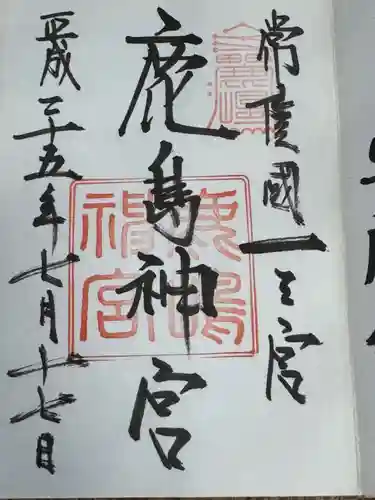 常陸國一之宮
鹿島神宮
平成二十五年七月十七日
鹿嶋
神宮